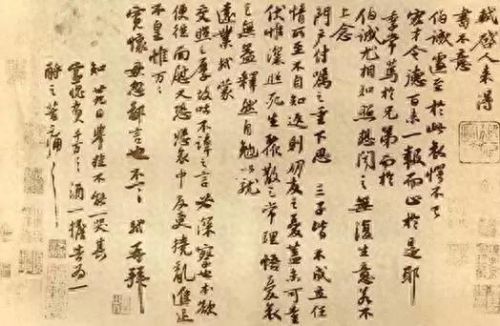 軾啟人来得
書不意
伯誠遽至於此哀愕不已
宏才令德百未一報而止於是耶
季常篤於兄弟而於
伯誠尤相知照想聞之無復生意若不
上念
門户付囑之重下思三子皆不成立任
情所至不自知返則朋友之憂蓋未可量
伏惟深照死生聚散之常理悟憂哀
之無益釋然自勉以就
遠業軾蒙
交照之厚故吐不諱之言必深察也本欲
便往面慰又恐悲哀中反更撓亂進退
不皇惟万万
寬懷毋忽鄙言也不一一軾再拜
知廿九日舉掛不能一哭其
靈愧負千万千万酒一擔告為一
酹之苦痛苦痛